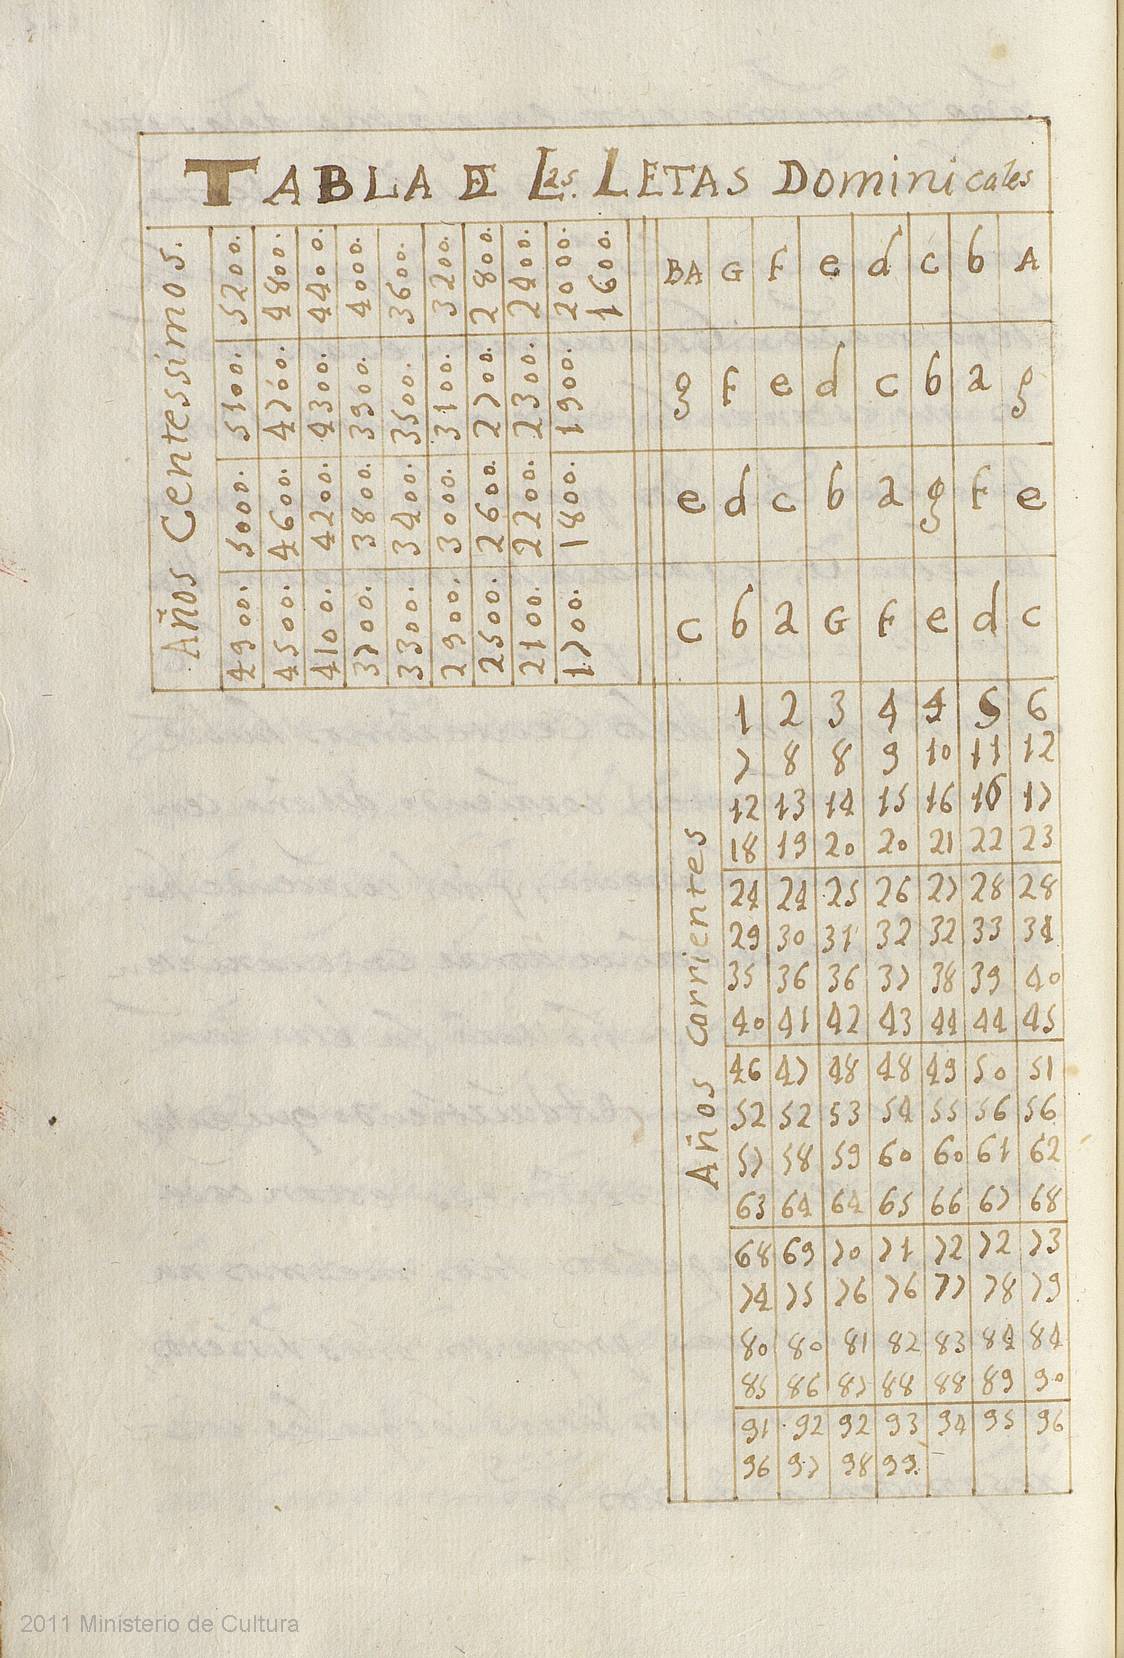 TABLA DE Las. LETAS Dominicales
Años Centessimos.
5200. 4800. 4400. 4000. 3600. 3200. 2800. 2400. 2000. 1600. BA G F e d c b A
5100. 4700. 4300. 3900. 3500. 3100. 2700. 2300. 1900. g F e d c b a g
5000. 4600. 4200. 3800. 3400. 3000. 2600. 2200. 1800. e d c b a g F e
4900. 4500. 4100. 3700. 3300. 2900. 2500. 2100. 1700. c b a G F e d c
Años corrientes
1 2 3 4 4 5 6
7 8 8 9 10 11 12
12 13 14 15 16 16 17
18 19 20 20 21 22 23
24 24 25 26 27 28 28
29 30 31 32 32 33 34
35 36 36 37 38 39 40
40 41 42 43 44 44 45
46 47 48 48 49 50 51
52 52 53 54 55 56 56
57 58 59 60 60 61 62
63 64 64 65 66 67 68
68 69 70 71 72 72 73
74 75 76 76 77 78 79
80 80 81 82 83 84 84
85 86 87 88 88 89 90
91 92 92 93 94 95 96
96 97 98 99.
2011 Ministerio de Cultura